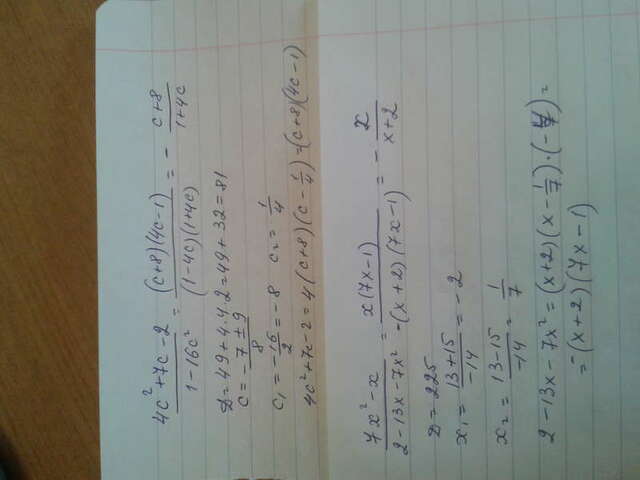 (4c²+7c-2)/(1-16c²) = ((c+8)(4c-1))/((1-4c)(1+4c)) = - (c+8)/(1+4c)
D=49+4·4·2=49+32=81
c = (-7±9)/8
c₁ = -16/2 = -8 c₂ = 1/4
4c²+7c-2=4(c+8)(c-1/4)=(c+8)(4c-1)
(7x²-x)/(2-13x-7x²) = (x(7x-1))/(-(x+2)(7x-1)) = - x/(x+2)
D=225
x₁ = (13+15)/(-14) = -2
x₂ = (13-15)/(-14) = 1/7
2-13x-7x² = (x+2)(x-1/7)·(-7)=
=-(x+2)(7x-1)